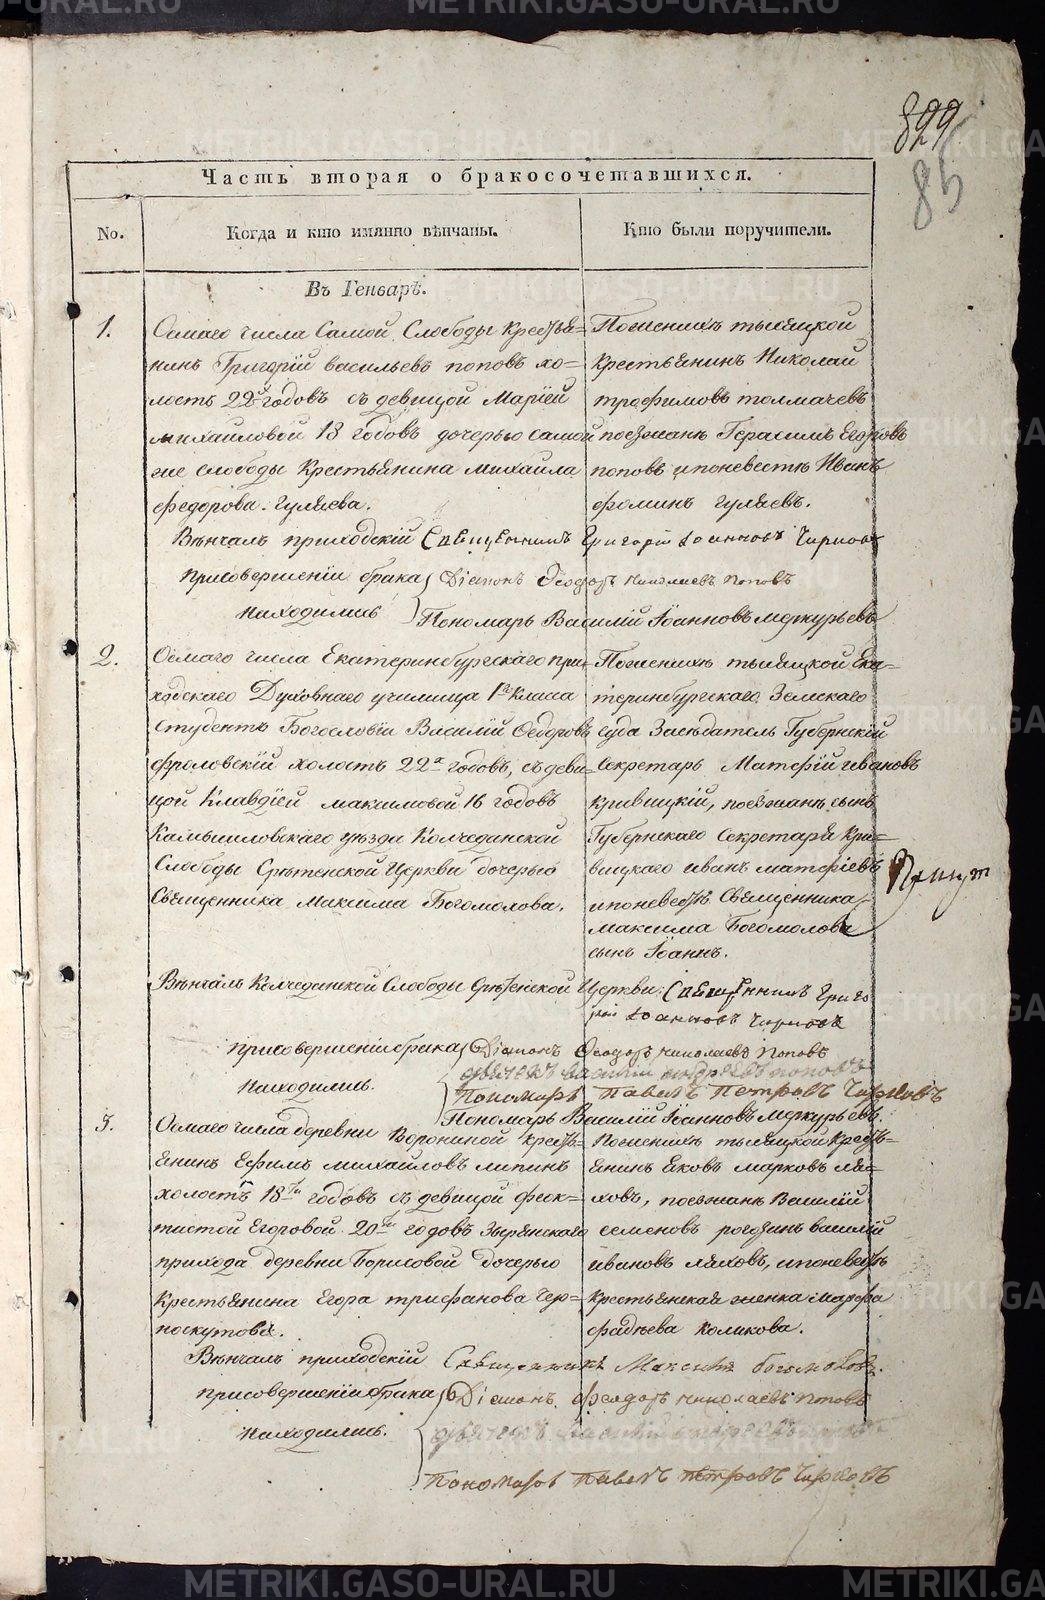 METRIKI.GASO-URAL.RU
899
85
Часть вторая о бракосочетавшихся.
No.
Когда и кто имянно вѣнчаны.
Кто были поручители.
Въ Генварѣ.
1.
Осмаго числа Самой Слободы Крестья=
нинъ Григорій васильевъ поповъ хо=
лостъ 22хъ годовъ съ девицой Маріей
михайловой 18 годовъ дочерью самой
же слободы Крестьянина михаила
федорова гуляева.
Поженихѣ тысяцкой
крестьянинъ Николай
трофимовъ толмачевъ
поезжанъ Герасимъ Егоровъ
поповъ ипоневестѣ Иванъ
фоминъ гуляевъ.
Вѣнчалъ приходскій Священникъ Григорій Іоанновъ Чирковъ
присовершеніи брака Діаконъ Феодотъ николаевъ поповъ
находились Пономарь Василій Іоанновъ меркурьевъ
2.
Осмаго числа Екатеринбургскаго при=
ходскаго Духовнаго училища 1го класа
студентъ Богословіи Василій Федоровъ
фроловскій холостъ 22а годовъ, съ деви=
цой Клавдіей максимовой 16 годовъ
Камышловскаго уѣзда Колчеданской
Слободы Срѣтенской Церкви дочерью
Священника Максима Богомолова.
Поженихѣ тысяцкой Ека=
теринбургскаго Земскаго
суда Засѣдатель Губернскій
Секретарь Матфій ивановъ
кривицкій, поезжанъ сынъ
Губернскаго Секретаря кри=
вицкаго иванъ матфіевъ
ипоневестѣ Священника
максима Богомолова
сынъ Іоаннъ.
Вѣнчалъ Колчеданской Слободы Срѣтенской Церкви Священникъ Григо
рій Іоанновъ Чирковъ
присовершеніи брака Діаконъ Феодотъ николаевъ поповъ
дьячекъ василій андреевъ поповъ
находились. Пономарь Павелъ Петровъ Чирковъ
Пономарь Василій Іоанновъ меркурьевъ.
3.
Осмаго числа деревни Ворониной кресть=
янинъ Ефимъ михайловъ липинъ
холостъ 18ти годовъ съ девицой фик=
тистой Егоровой 20ти годовъ Зырянскаго
прихода деревни Борисовой дочерью
Крестьянина Егора трифанова чер=
носкутова.
Поженихѣ тысяцкой кресть=
янинъ Яковъ марковъ ля=
ховъ, поезжанъ Василій
семеновъ рогозинъ василій
ивановъ ляховъ, ипоневестѣ
крестьянская женка марфа
фадѣева коликова.
Вѣнчалъ приходскій Священникъ Максимъ богомоловъ.
присовершеніи брака Діаконъ феодотъ николаевъ поповъ
находились.
Пономарь павелъ петровъ Чирковъ
METRIKI.GASO-URAL.RU